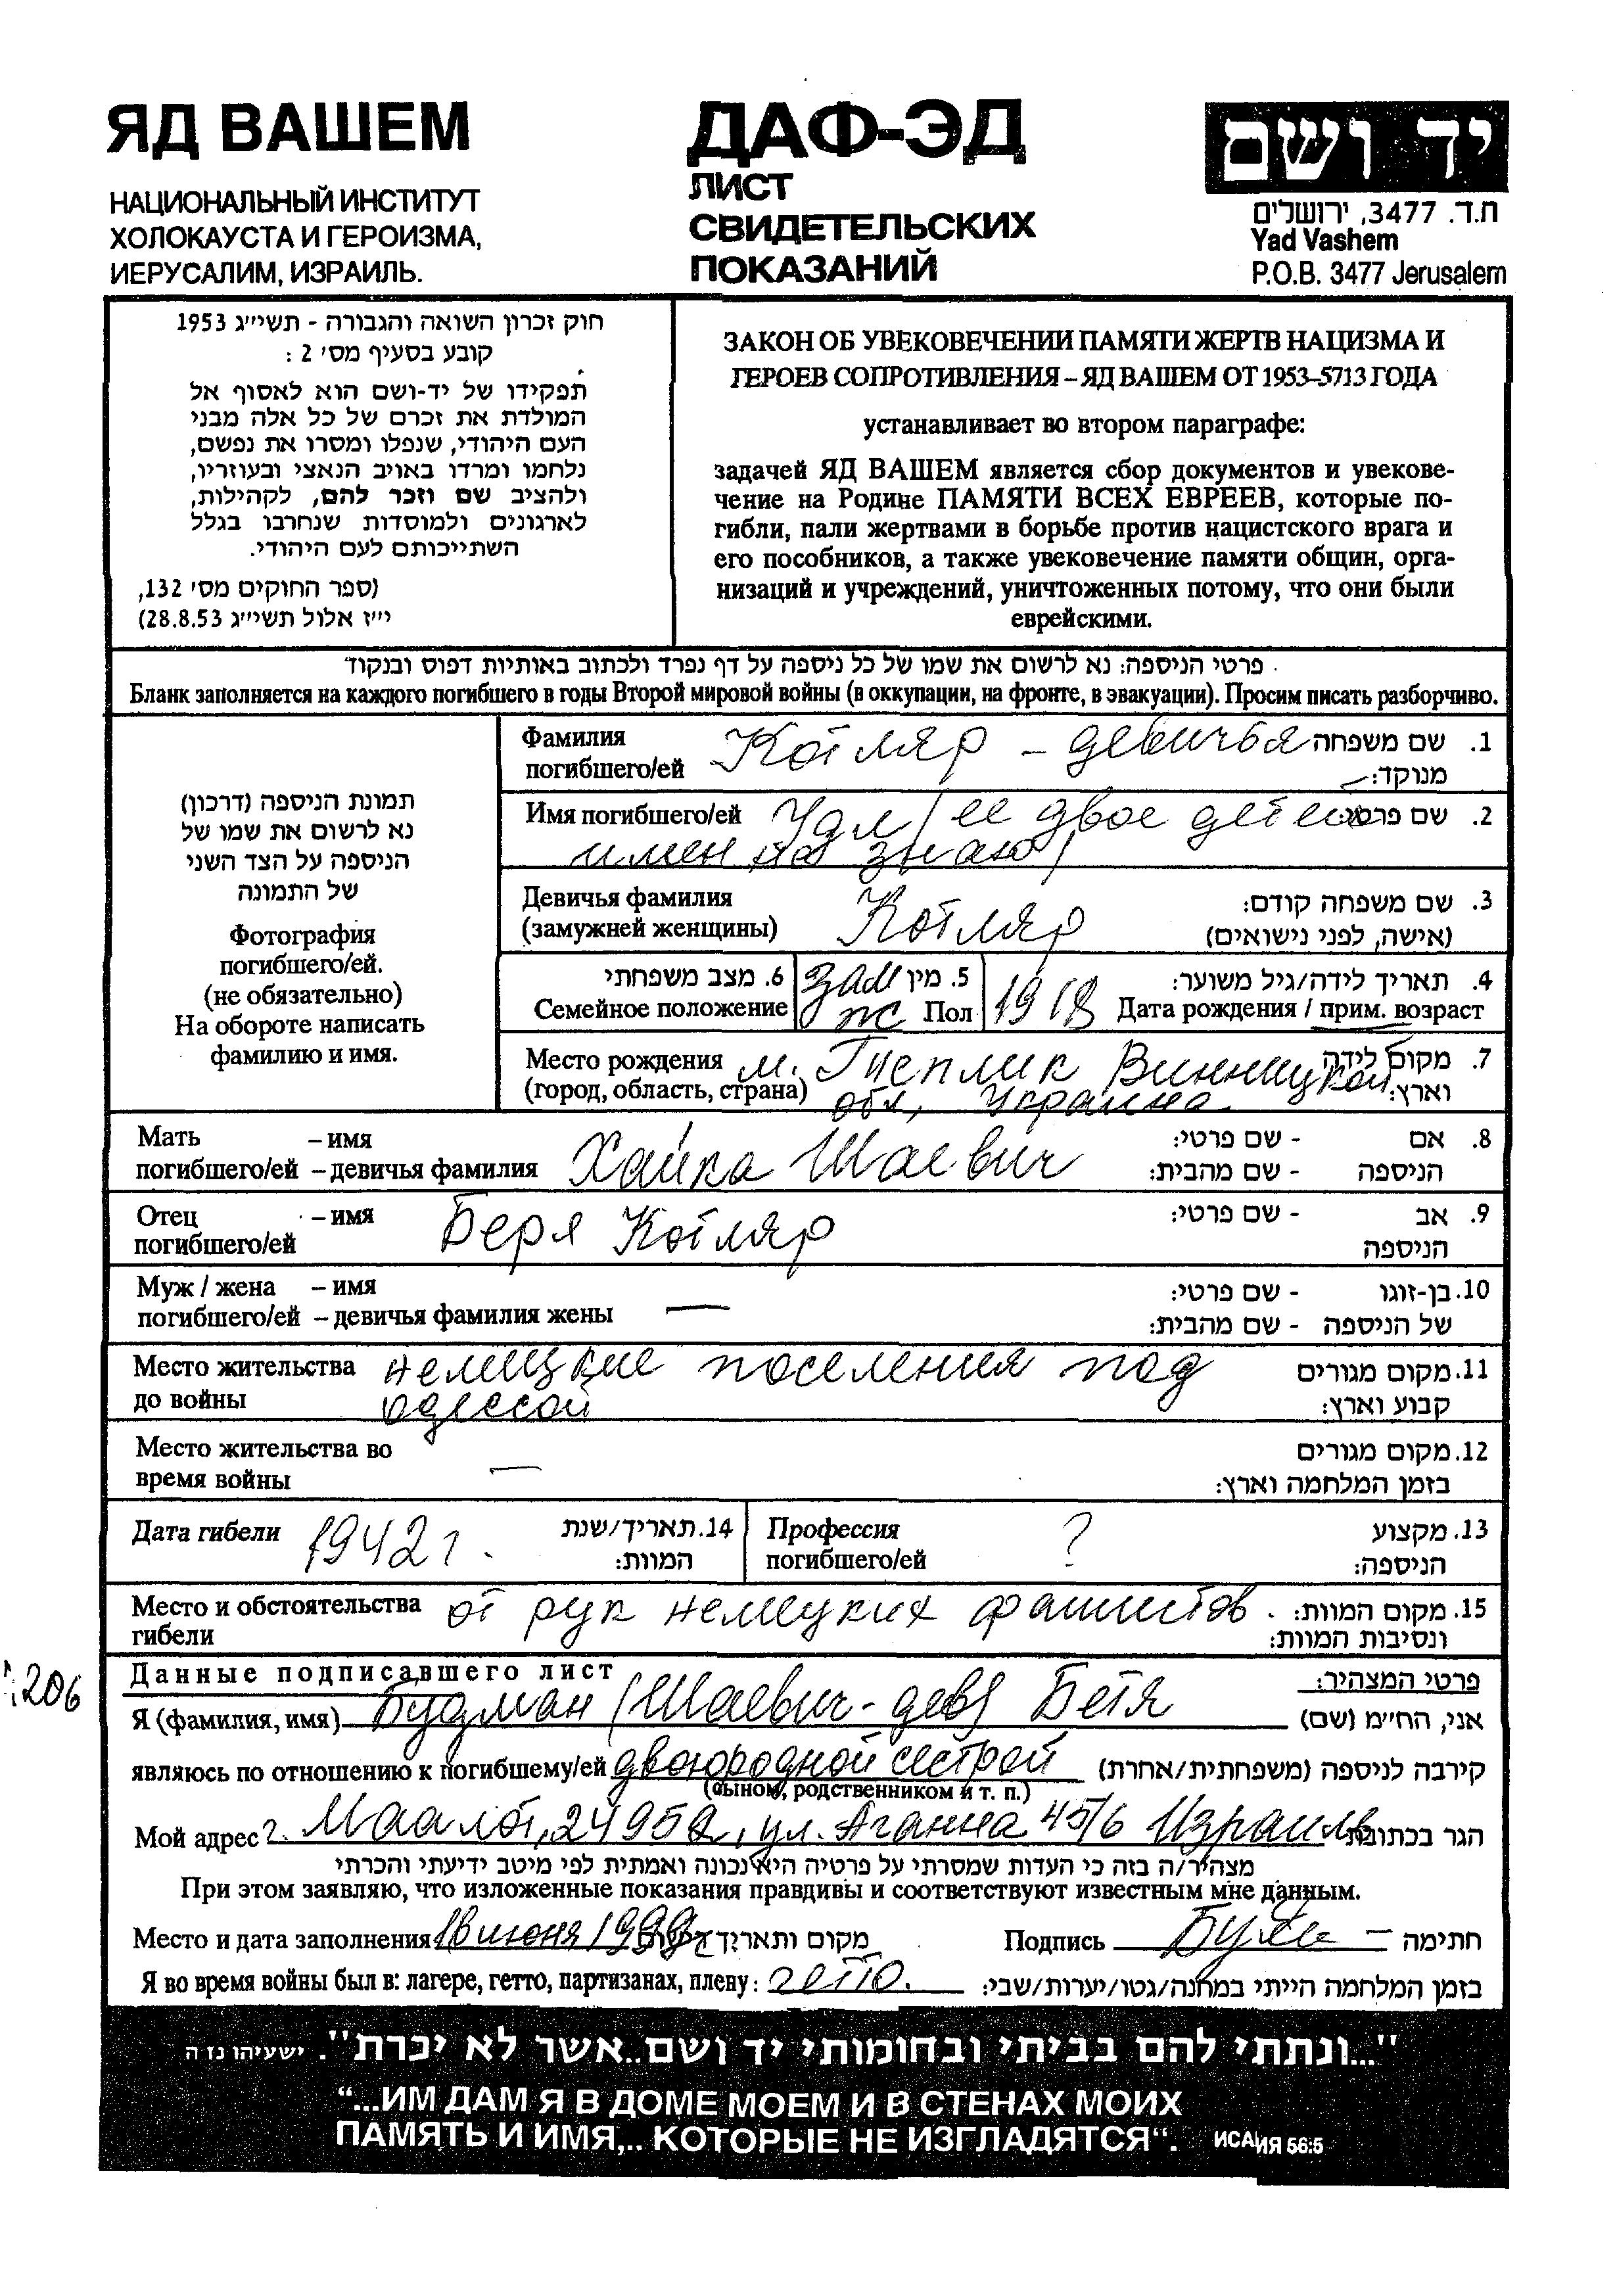 ЯД ВАШЕМ
НАЦИОНАЛЬНЫЙ ИНСТИТУТ
ХОЛОКАУСТА И ГЕРОИЗМА,
ИЕРУСАЛИМ, ИЗРАИЛЬ.
ДАФ-ЭД
ЛИСТ
СВИДЕТЕЛЬСКИХ
ПОКАЗАНИЙ
יד ושם
ת.ד. 3477, ירושלים
Yad Vashem
P.O.B. 3477 Jerusalem
חוק זכרון השואה והגבורה - תשי״ג 1953
קובע בסעיף מס׳ 2 :
תפקידו של יד-ושם הוא לאסוף אל
המולדת את זכרם של כל אלה מבני
העם היהודי, שנפלו ומסרו את נפשם,
נלחמו ומרדו באויב הנאצי ובעוזריו,
ולהציב שם וזכר להם, לקהילות,
לארגונים ולמוסדות שנחרבו בגלל
השתייכותם לעם היהודי.
(ספר החוקים מס׳ 132,
י״ז אלול תשי״ג 28.8.53)
ЗАКОН ОБ УВЕКОВЕЧЕНИИ ПАМЯТИ ЖЕРТВ НАЦИЗМА И
ГЕРОЕВ СОПРОТИВЛЕНИЯ – ЯД ВАШЕМ ОТ 1953–5713 ГОДА
устанавливает во втором параграфе:
задачей ЯД ВАШЕМ является сбор документов и увекове-
чение на Родине ПАМЯТИ ВСЕХ ЕВРЕЕВ, которые по-
гибли, пали жертвами в борьбе против нацистского врага и
его пособников, а также увековечение памяти общин, орга-
низаций и учреждений, уничтоженных потому, что они были
еврейскими.
פרטי הניספה: נא לרשום את שמו של כל ניספה על דף נפרד ולכתוב באותיות דפוס ובנקוד
Бланк заполняется на каждого погибшего в годы Второй мировой войны (в оккупации, на фронте, в эвакуации). Просим писать разборчиво.
תמונת הניספה (דרכון)
נא לרשום את שמו של
הניספה על הצד השני
של התמונה
Фотография
погибшего/ей.
(не обязательно)
На обороте написать
фамилию и имя.
Фамилия Котляр – девичья שם משפחה .1
погибшего/ей מנוקד:
Имя погибшего/ей Удл (ее двое детей שם פרטי: .2
имен не знаю)
Девичья фамилия Котляр שם משפחה קודם: .3
(замужней женщины) (אישה, לפני נישואים)
6. מצב משפחתי зам 5. מין 1918 תאריך לידה/גיל משוער: .4
Семейное положение ж Пол Дата рождения / прим. возраст
Место рождения м. Теплик Винницкой מקום לידה .7
(город, область, страна) обл, Украина וארץ:
Мать – имя - שם פרטי: אם .8
погибшего/ей – девичья фамилия Хайка Шаевич - שם מהבית: הניספה
Отец – имя Беря Котляр - שם פרטי: אב .9
погибшего/ей הניספה
Муж / жена – имя - שם פרטי: בן-זוגו .10
погибшего/ей – девичья фамилия жены — - שם מהבית: של הניספה
Место жительства немецкие поселения под מקום מגורים .11
до войны одессой קבוע וארץ:
Место жительства во מקום מגורים .12
время войны — בזמן המלחמה וארץ:
Дата гибели 1942 г. 14. תאריך/שנת Профессия ? מקצוע .13
המוות: погибшего/ей הניספה:
Место и обстоятельства от рук немецких фашистов. מקום המוות: .15
гибели ונסיבות המוות:
Данные подписавшего лист פרטי המצהיר:
206
Я (фамилия, имя) Будман (Шаевич-дев) Бетя אני, הח״מ (שם)
являюсь по отношению к погибшему/ей двоюродной сестрой קירבה לניספה (משפחתית/אחרת)
(сыном, родственником и т. п.)
Мой адрес г. Маалот, 24952, ул. Аганна 45/6 Израиль הגר בכתובת
מצהיר/ה בזה כי העדות שמסרתי על פרטיה היא נכונה ואמתית לפי מיטב ידיעתי והכרתי
При этом заявляю, что изложенные показания правдивы и соответствуют известным мне данным.
Место и дата заполнения 18 июня 1999г מקום ותאריך Подпись חתימה
Я во время войны был в: лагере, гетто, партизанах, плену: гетто. בזמן המלחמה הייתי במחנה/גטו/יערות/שבי:
"...ונתתי להם בביתי ובחומותי יד ושם..אשר לא יכרת". ישעיהו נז ה
“...ИМ ДАМ Я В ДОМЕ МОЕМ И В СТЕНАХ МОИХ
ПАМЯТЬ И ИМЯ,.. КОТОРЫЕ НЕ ИЗГЛАДЯТСЯ“. ИСАИЯ 56:5